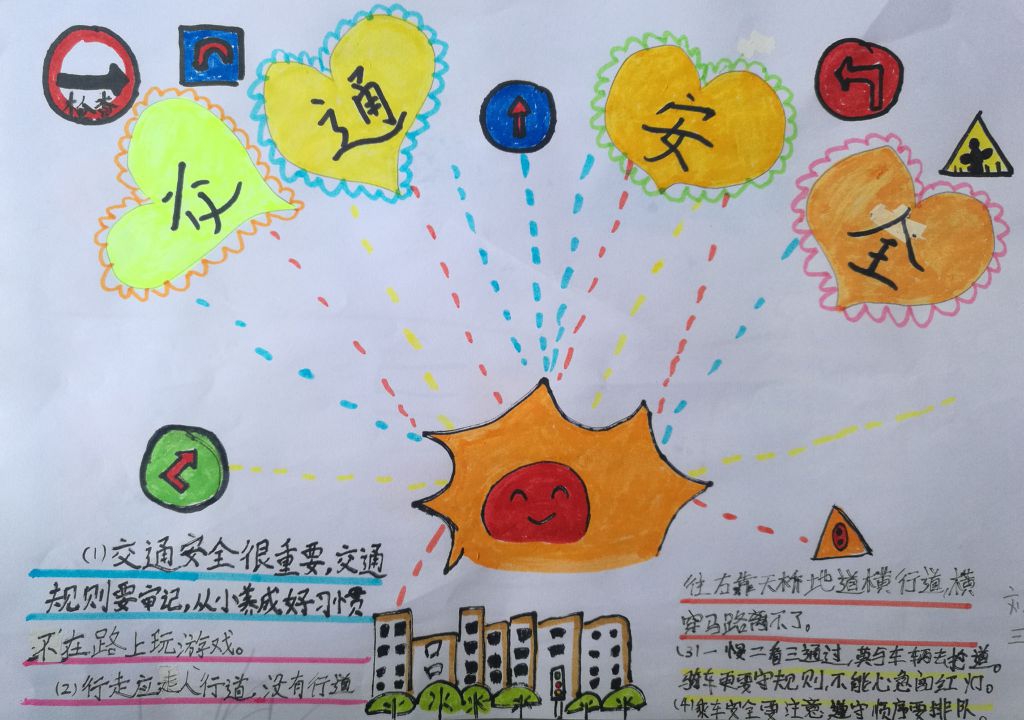 检查
交
通
安
全
(1)交通安全很重要,交通
规则要审记,从小养成好习惯
不在路上玩游戏。
(2)行走应走人行道,没有行道
往左靠天桥地道横行道,横
穿马路离不了。
(3)一慢二看三通过,莫与车辆去抢道。
骑车更要守规则,不能心急闯红灯。
(4)乘车安全要注意遵守顺序要排队